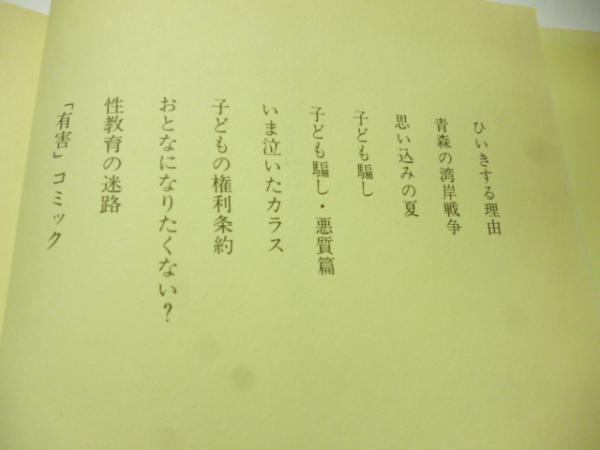 ひいきする理由
青森の湾岸戦争
思い込みの夏
子ども騙し
子ども騙し・悪質篇
いま泣いたカラス
子どもの権利条約
おとなになりたくない?
性教育の迷路
「有害」コミック